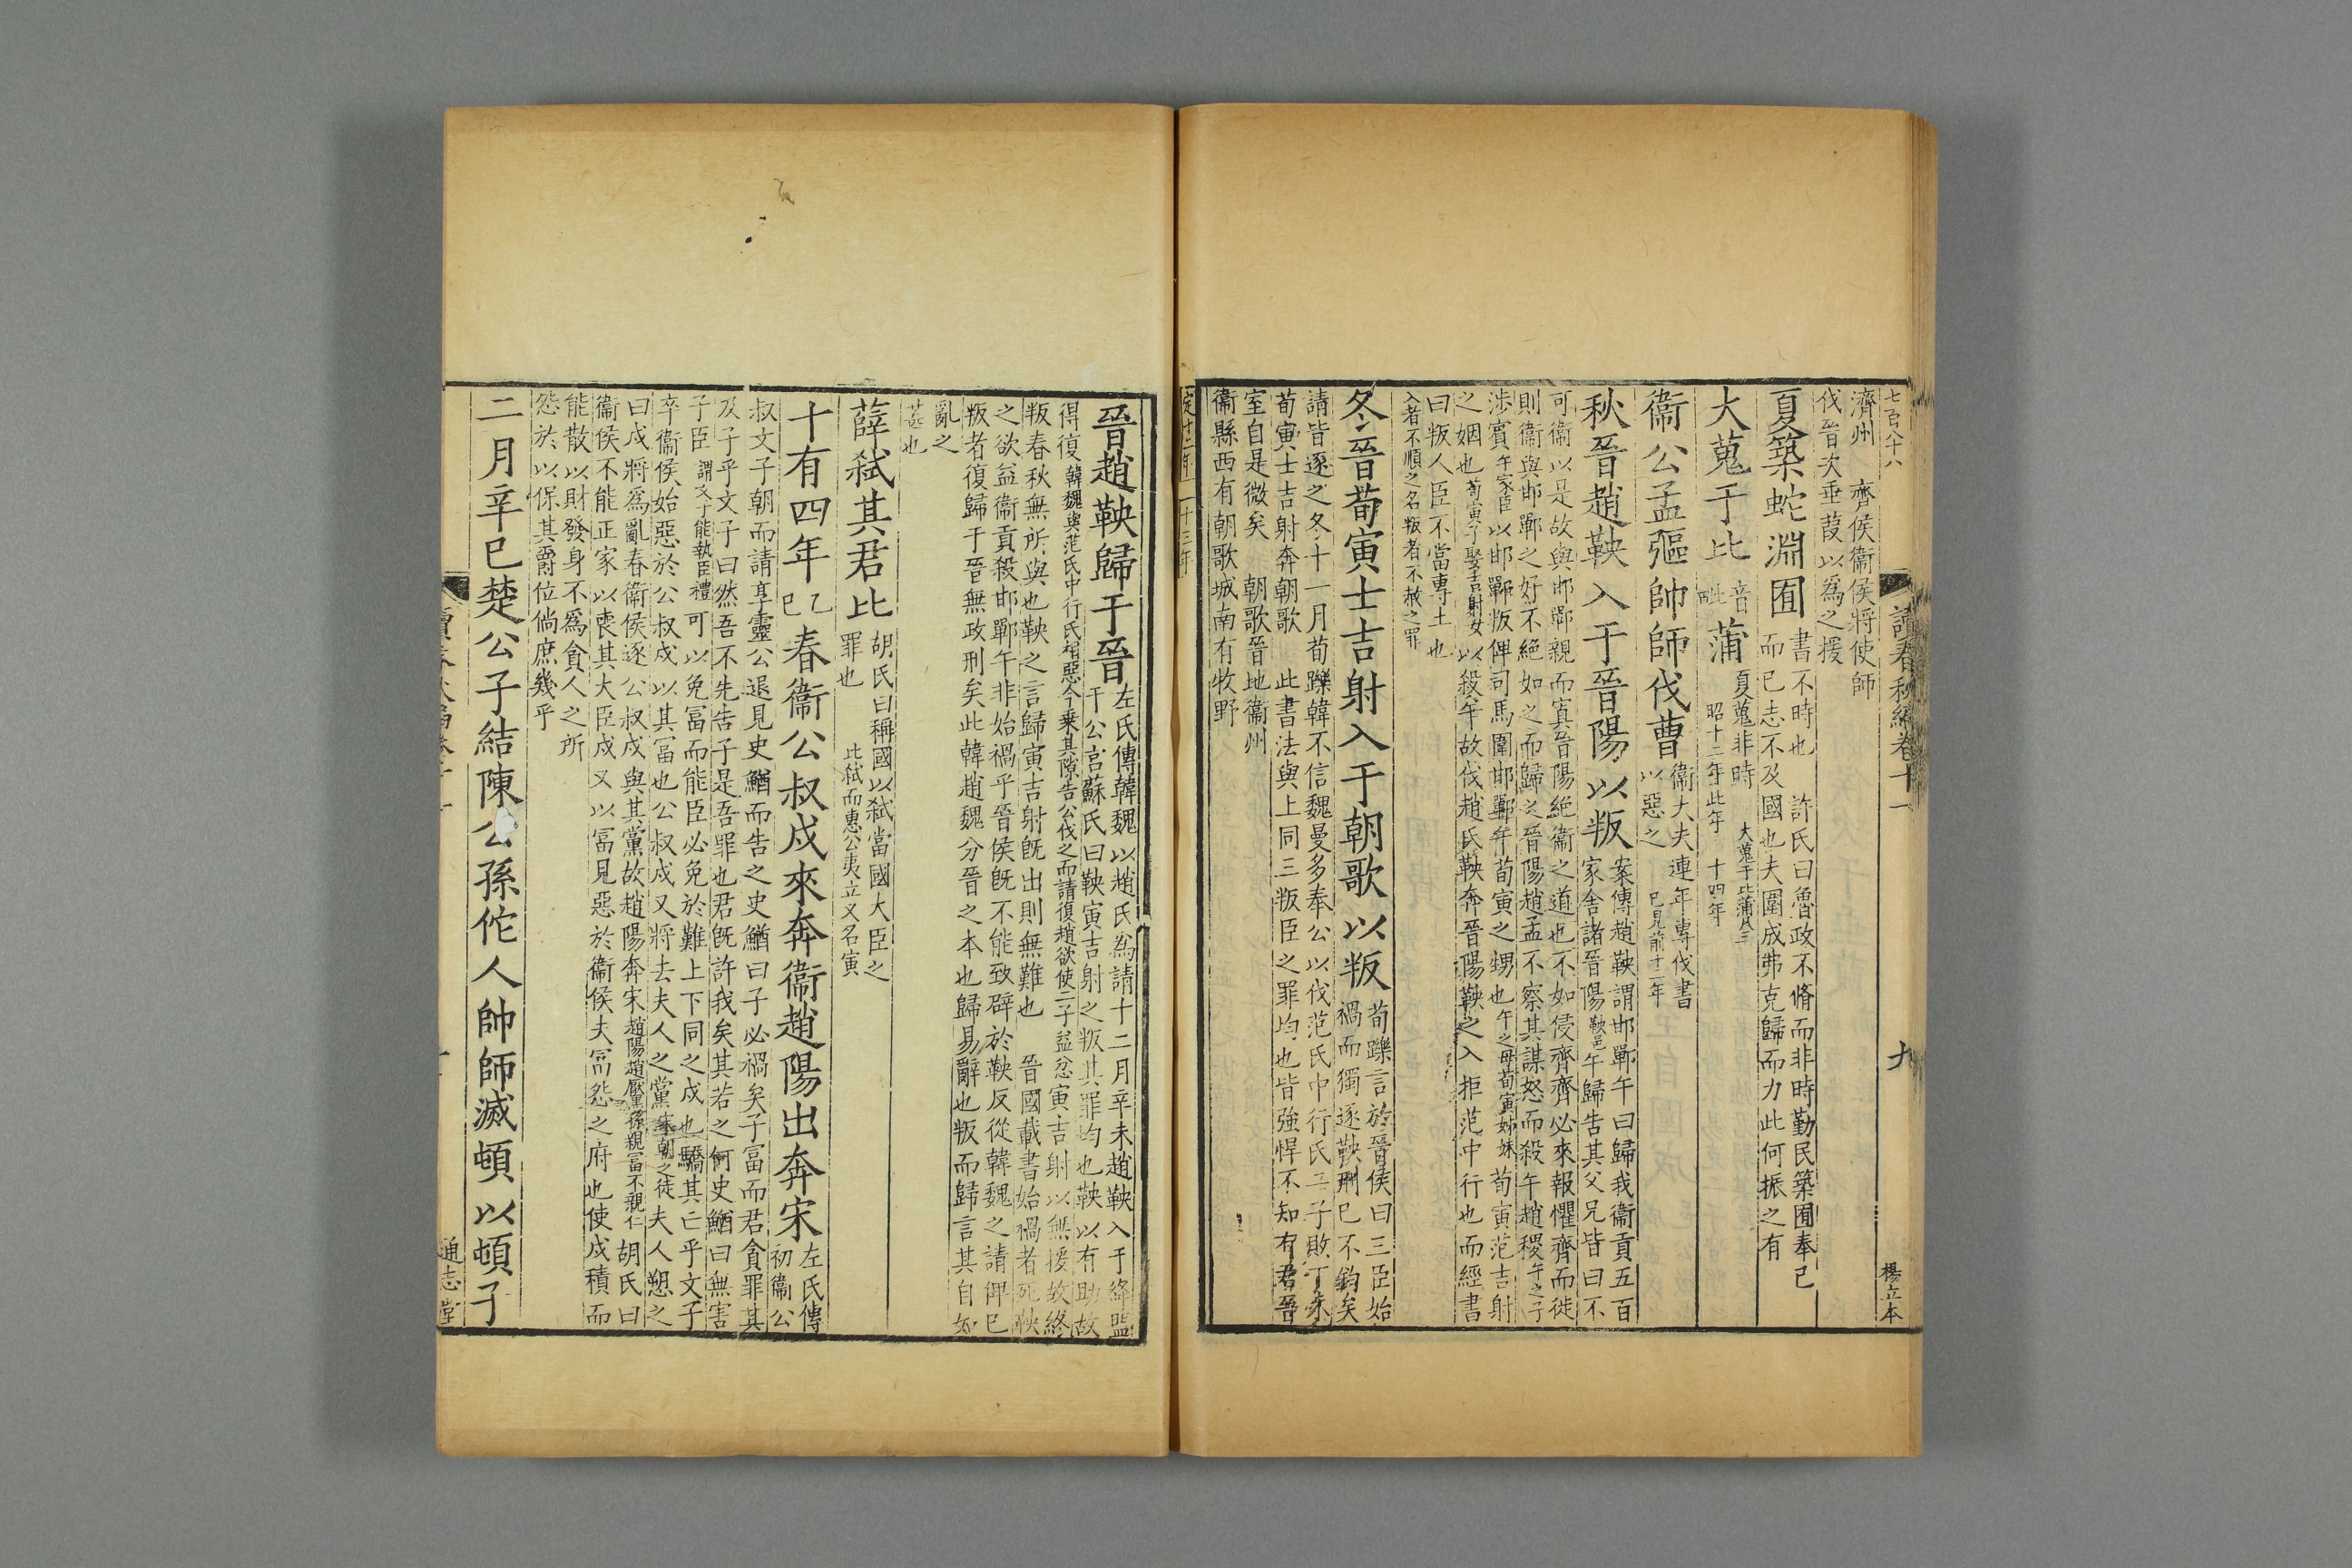 七百八十八
讀春秋編卷十一
九
楊立本
濟州 齊侯衞侯將使師
伐晉次垂葭以爲之援
夏築蛇淵囿
書不時也 許氏曰魯政不脩而非時勤民築囿奉己
而已志不及國也夫圍成弗克歸而力此何振之有
大蒐于比
音
蒲
夏蒐非時 大蒐于比蒲凡三
昭十一年此年 十四年
衞公孟彄帥師伐曹
衞大夫連年專伐書
以惡之 已見前十二年
秋晉趙鞅入于晉陽以叛
案傳趙鞅謂邯鄲午曰歸我衞貢五百
家舍諸晉陽鞅邑午歸告其父兄皆曰不
可衞以是故與邯鄲親而寘晉陽絕衞之道也不如侵齊齊必來報懼齊而徙
則衞與邯鄲之好不絕如之而歸之晉陽趙孟不察其謀怒而殺午趙稷午之子
涉賓午家臣以邯鄲叛俾司馬圍邯鄲午荀寅之甥也午之母荀寅姊妹荀寅范吉射
之姻也荀寅子娶吉射女以殺午故伐趙氏鞅奔晉陽鞅之入拒范中行也而經書
曰叛人臣不當專土也
入者不順之名叛者不赦之罪
冬晉荀寅士吉射入于朝歌以叛
荀躒言於晉侯曰三臣始
禍而獨逐鞅刑已不鈞矣
請皆逐之冬十一月荀躒韓不信魏曼多奉公以伐范氏中行氏二子敗丁未
荀寅士吉射奔朝歌 此書法與上同三叛臣之罪均也皆強悍不知有君晉
室自是微矣 朝歌晉地衞州
衞縣西有朝歌城南有牧野
定十二年 十三年
晉趙鞅歸于晉
左氏傳韓魏以趙氏爲請十二月辛未趙鞅入于絳盟
于公宮蘇氏曰鞅寅吉射之叛其罪均也鞅以有助故
得復韓魏與范氏中行氏相惡今乗其隙告公伐之而請復趙欲使二子益忿寅吉射以無援故終
叛春秋無所與也鞅之言歸寅吉射旣出則無難也 晉國載書始禍者死鞅
之欲益衞貢殺邯鄲午非始禍乎晉侯旣不能致辟於鞅反從韓魏之請俾已
叛者復歸于晉無政刑矣此韓趙魏分晉之本也歸易辭也叛而歸言其自如
亂之
甚也
薛弑其君比
胡氏曰稱國以弑當國大臣之
罪也 比弑而惠公夷立又名寅
十有四年
乙巳
春衞公叔戍來奔衞趙陽出奔宋
左氏傳
初衞公
叔文子朝而請享靈公退見史鰌而告之史鰌曰子必禍矣子富而君貪罪其
及子乎文子曰然吾不先告子是吾罪也君旣許我矣其若之何史鰌曰無害
子臣謂文子能執臣禮可以免富而能臣必免於難上下同之戍也驕其亡乎文子
卒衞侯始惡於公叔戍以其富也公叔戍又將去夫人之黨宋朝之徒夫人愬之
曰戍將爲亂春衞侯逐公叔戍與其黨故趙陽奔宋趙陽趙黶孫親富不親仁 胡氏曰
衞侯不能正家以喪其大臣戍又以富見惡於衞侯夫富怨之府也使戍積而
能散以財發身不爲貪人之所
怨於以保其爵位倘庶幾乎
二月辛巳楚公子結陳公孫佗人帥師滅頓以頓子
通志堂